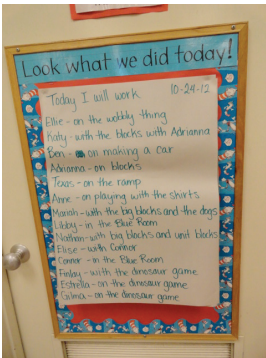 Look what we did today!
Today I will work 10-24-12
Ellie - on the wobbly thing
Katy - with the blocks with Adrianna
Ben - on making a car
Adrianna - on blocks
Texas - on the ramp
Anne - on playing with the skirts
Mariah - with the big blocks and the dogs
Libby - in the Blue Room
Nathan - with big blocks and unit blocks
Elise - with Connor
Connor - in the Blue Room
Finlay - with the dinosaur game
Estrella - on the dinosaur game
Gilma - on the dinosaur game